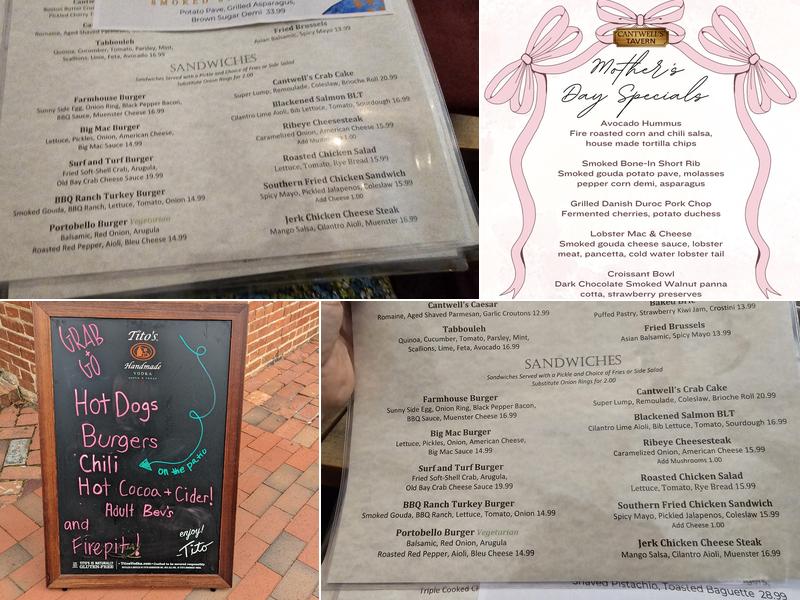 SMOKED
Potato Pave, Grilled Asparagus,
Brown Sugar Demi 33.99
Boston Butter
Pickled Cherry
Romaine, Aged Shaved Parmesan,
Tabbouleh
Quinoa, Cucumber, Tomato, Parsley, Mint,
Scallions, Lime, Feta, Avocado 16.99
Fried Brussels
Asian Balsamic, Spicy Mayo 13.99
SANDWICHES
Sandwiches Served with a Pickle and Choice of Fries or Side Salad
Substitute Onion Rings for 2.00
Farmhouse Burger
Sunny Side Egg, Onion Ring, Black Pepper Bacon,
BBQ Sauce, Muenster Cheese 16.99
Big Mac Burger
Lettuce, Pickles, Onion, American Cheese,
Big Mac Sauce 14.99
Surf and Turf Burger
Fried Soft-Shell Crab, Arugula,
Old Bay Crab Cheese Sauce 19.99
BBQ Ranch Turkey Burger
Smoked Gouda, BBQ Ranch, Lettuce, Tomato, Onion 14.99
Portobello Burger Vegetarian
Balsamic, Red Onion, Arugula
Roasted Red Pepper, Aioli, Bleu Cheese 14.99
Cantwell's Crab Cake
Super Lump, Remoulade, Coleslaw, Brioche Roll 20.99
Blackened Salmon BLT
Cilantro Lime Aioli, Bib Lettuce, Tomato, Sourdough 16.99
Ribeye Cheesesteak
Caramelized Onion, American Cheese 15.99
Add Mushrooms 1.00
Roasted Chicken Salad
Lettuce, Tomato, Rye Bread 15.99
Southern Fried Chicken Sandwich
Spicy Mayo, Pickled Jalapenos, Coleslaw 15.99
Add Cheese 1.00
Jerk Chicken Cheese Steak
Mango Salsa, Cilantro Aioli, Muenster 16.99
CANTWELL'S
TAVERN
Mother's
Day Specials
Avocado Hummus
Fire roasted corn and chili salsa,
house made tortilla chips
Smoked Bone-In Short Rib
Smoked gouda potato pave, molasses
pepper corn demi, asparagus
Grilled Danish Duroc Pork Chop
Fermented cherries, potato duchess
Lobster Mac & Cheese
Smoked gouda cheese sauce, lobster
meat, pancetta, cold water lobster tail
Croissant Bowl
Dark Chocolate Smoked Walnut panna
cotta, strawberry preserves
GRAB
+
GO
Tito's
Handmade
VODKA
Hot Dogs
Burgers
Chili
on the patio
Hot Cocoa + Cider!
Adult Bev's
and
Firepit!
enjoy!
Tito
TITO'S IS NATURALLY
GLUTEN-FREE
TitosVodka.com
Cantwell's Caesar
Romaine, Aged Shaved Parmesan, Garlic Croutons 12.99
Tabbouleh
Quinoa, Cucumber, Tomato, Parsley, Mint,
Scallions, Lime, Feta, Avocado 16.99
Baked Brie
Puffed Pastry, Strawberry Kiwi Jam, Crostini 13.99
Fried Brussels
Asian Balsamic, Spicy Mayo 13.99
SANDWICHES
Sandwiches Served with a Pickle and Choice of Fries or Side Salad
Substitute Onion Rings for 2.00
Farmhouse Burger
Sunny Side Egg, Onion Ring, Black Pepper Bacon,
BBQ Sauce, Muenster Cheese 16.99
Big Mac Burger
Lettuce, Pickles, Onion, American Cheese,
Big Mac Sauce 14.99
Surf and Turf Burger
Fried Soft-Shell Crab, Arugula,
Old Bay Crab Cheese Sauce 19.99
BBQ Ranch Turkey Burger
Smoked Gouda, BBQ Ranch, Lettuce, Tomato, Onion 14.99
Portobello Burger Vegetarian
Balsamic, Red Onion, Arugula
Roasted Red Pepper, Aioli, Bleu Cheese 14.99
Cantwell's Crab Cake
Super Lump, Remoulade, Coleslaw, Brioche Roll 20.99
Blackened Salmon BLT
Cilantro Lime Aioli, Bib Lettuce, Tomato, Sourdough 16.99
Ribeye Cheesesteak
Caramelized Onion, American Cheese 15.99
Add Mushrooms 1.00
Roasted Chicken Salad
Lettuce, Tomato, Rye Bread 15.99
Southern Fried Chicken Sandwich
Spicy Mayo, Pickled Jalapenos, Coleslaw 15.99
Add Cheese 1.00
Jerk Chicken Cheese Steak
Mango Salsa, Cilantro Aioli, Muenster 16.99
Triple Cooked
Shaved Pistachio, Toasted Baguette 28.99